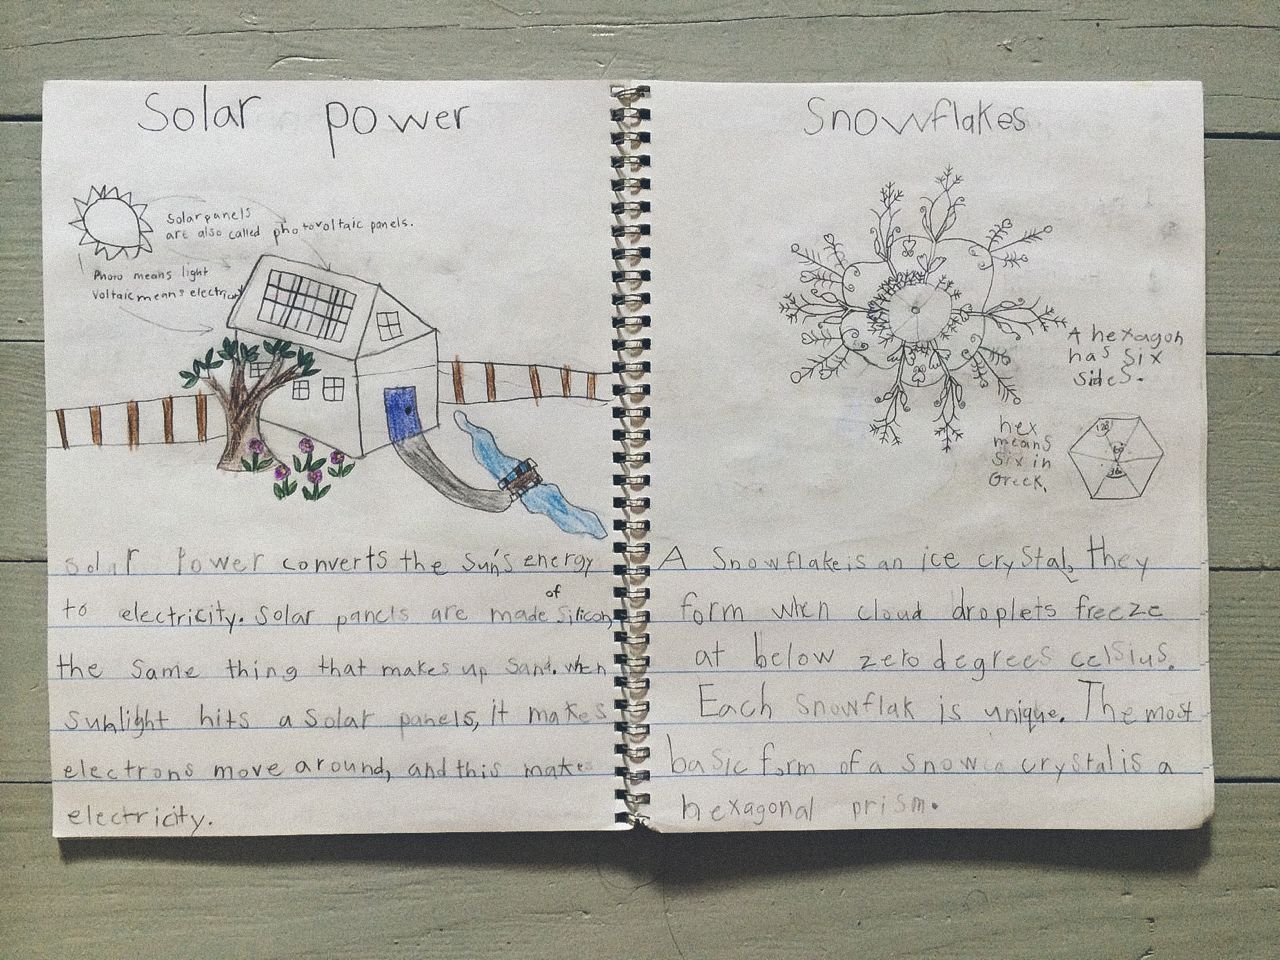 Solar power
Solar panels
are also called photovoltaic panels.
Photo means light
Voltaic means electricity
Solar Power converts the Sun's energy
to electricity. Solar panels are made of Silicon,
the Same thing that makes up Sand. When
Sunlight hits a Solar panels, it makes
electrons move around, and this makes
electricity.
Snowflakes
A hexagon
has Six
Sides.
hex
means
Six in
Greek.
A Snowflake is an ice crystal, they
form when cloud droplets freeze
at below zero degrees celsius.
Each Snowflak is unique. The most
basic form of a Snow crystal is a
hexagonal prism.